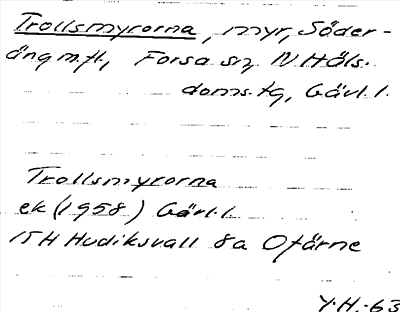 Trollsmyrorna, myr, Söder-
äng m.fl., Forsa sn, N Häls.
doms. tg, Gävl. l.
Trollsmyrorna
ek (1958) Gävl. l.
15H Hudiksvall 8a Ofärne
Y.H.-63